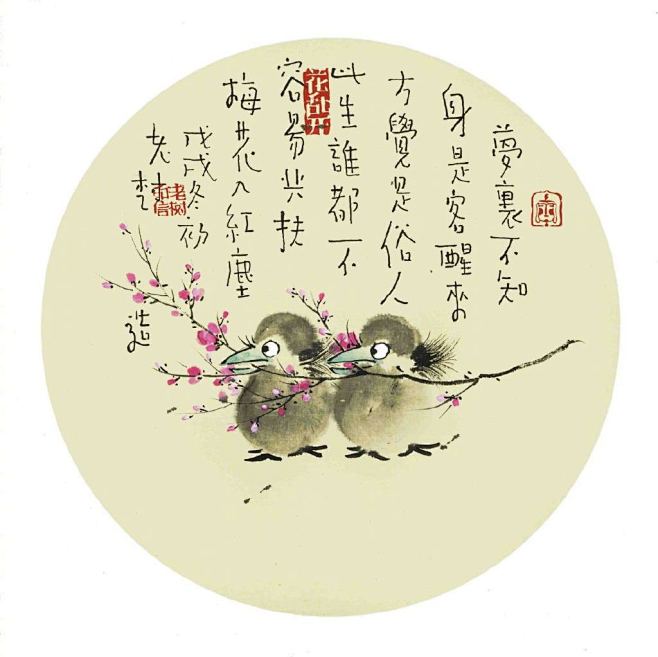 夢裏不知
身是客醒來
方覺是俗人
此生誰都不
容易共扶
梅花入紅塵
戊戌冬初
老樹
造
花乱开